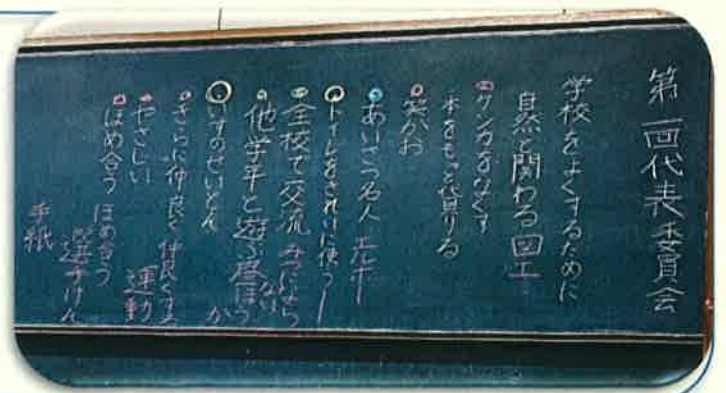 第一回代表委員会
学校をよくするために
自然と関わる 図工
ケンカをなくす
本をもっと借りる
笑がお
あいさつ名人 エルボー
トイレをきれいに使う
全校で交流
他学年と遊ぶ 昼ほう
いすのせいとん か
さらに仲良く 仲良くする
やさしい 運動
ほめ合う ほめ合う
選手けん
手紙